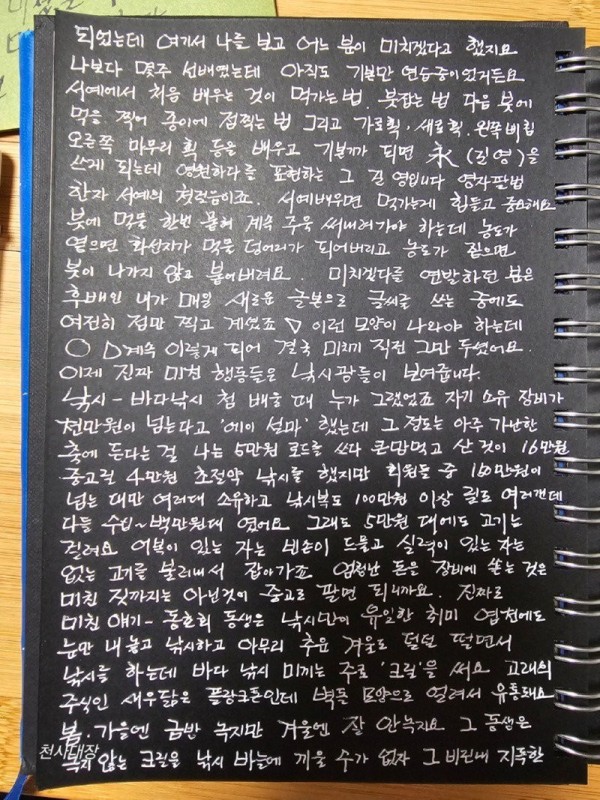 되었는데 여기서 나를 보고 어느 분이 미치겠다고 했지요
나보다 몇주 선배였는데 아직도 기불만 연습중이었거든요
서예에서 처음 배우는 것이 먹가는법. 붓잡는 법 다음 붓에
먹을 찍어 종이에 점찍는 법 그리고 가로획·새로획. 왼쪽 삐침
오른쪽 마무리 획 등을 배우고 기불까가 되면 永 (길영)을
쓰게 되는데 영원하다를 표현하는 그 길 영입니다 영자팔법
한자 서예의 첫걸음이죠. 서예배우면 먹가는게 힘들고 중요해요
붓에 먹물 한번 묻혀 계속 주욱 써내려가야 하는데 농도가
옅으면 화선지가 먹물 덩어리가 되어버리고 농도가 짙으면
붓이 나가지 않고 붙어버려요. 미치겠다를 연발하던 분은
후배인 내가 매일 새로운 글본으로 글씨를 쓰는 중에도
여전히 점만 찍고 계셨죠 이런 모양이 나와야 하는데
계속 이렇게 되어 결국 미치기 직전 그만 두셨어요.
이제 진짜 미친 행동들은 낚시광들이 보여줍니다.
낚시 - 바다낚시 첨 배울 때 누가 그랬었죠 자기 소유 장비가
천만원이 넘는다고 '에이 설마' 했는데 그 정도는 아주 가난한
축에 든다는 걸 나는 5만원 로드를 쓰다 큰맘먹고 산 것이 16만원
중고릴 4만원 초절약 낚시를 했지만 회원들 중 150만원이
넘는 대만 여러대 소유하고 낚시복도 100만원 이상 릴도 여러갠데
다들 수십~백만원대 였어요 그래도 5만원 대에도 고기는
걸려요 어복이 있는 자는 빈손이 드물고 실력이 있는 자는
없는 고기를 불러내서 잡아가죠. 엄청난 돈을 장비에 쏟는 것은
미친 짓까지는 아닌것이 중고로 팔면 되니까요. 진짜로
미친 얘기 - 동호회 동생은 낚시만이 유일한 취미 엽전에도
눈만 내놓고 낚시하고 아무리 추운 겨울도 덜덜 떨면서
낚시를 하는데 바다 낚시 미끼는 주로 '크릴'을 써요 고래의
주식인 새우닮은 플랑크톤인데 벽돌 모양으로 얼려서 유통돼요
봄·가을엔 금방 녹지만 겨울엔 잘 안녹지요 그 동생은
녹지 않는 크릴을 낚시 바늘에 끼울 수가 없자 그 비린내 지독한
천사대장